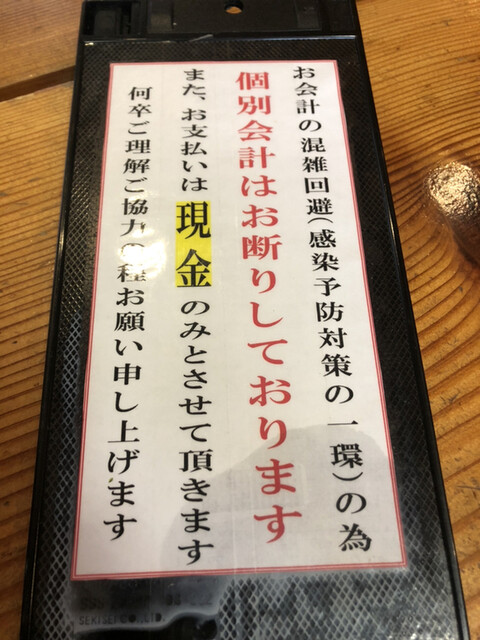 お会計の混雑回避(感染予防対策の一環)の為
個別会計はお断りしております
また、お支払いは現金のみとさせて頂きます
何卒ご理解ご協力の程お願い申し上げます
SEKISEI CO.,LTD